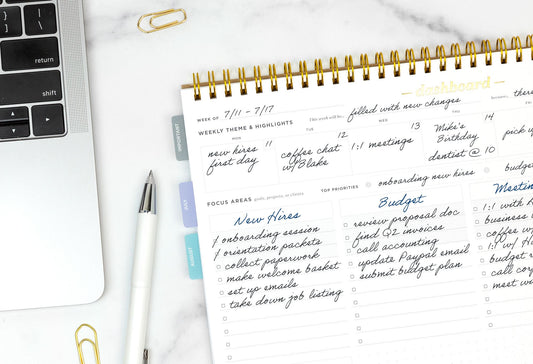 return
shift
dashboard
WEEK OF 7/11 - 7/17
This week will be: filled with new changes
there
WEEKLY THEME & HIGHLIGHTS
MON TUE WED THU
11 12 13 14
new hires first day
coffee chat w/ Blake
1:1 meetings
Mike's Birthday
dentist @ 10
pick up
FOCUS AREAS goals, projects, or clients
TOP PRIORITIES
onboarding new hires
budget
New Hires
onboarding session
orientation packets
collect paperwork
make welcome basket
set up emails
take down job listing
Budget
review proposal doc
find Q2 invoices
call accounting
update Paypal email
submit budget plan
Meetin
1:1 with
business
coffee w/
1:1 w/
budget
call cor
meet wi
IMPORTANT
JULY
AUGUST